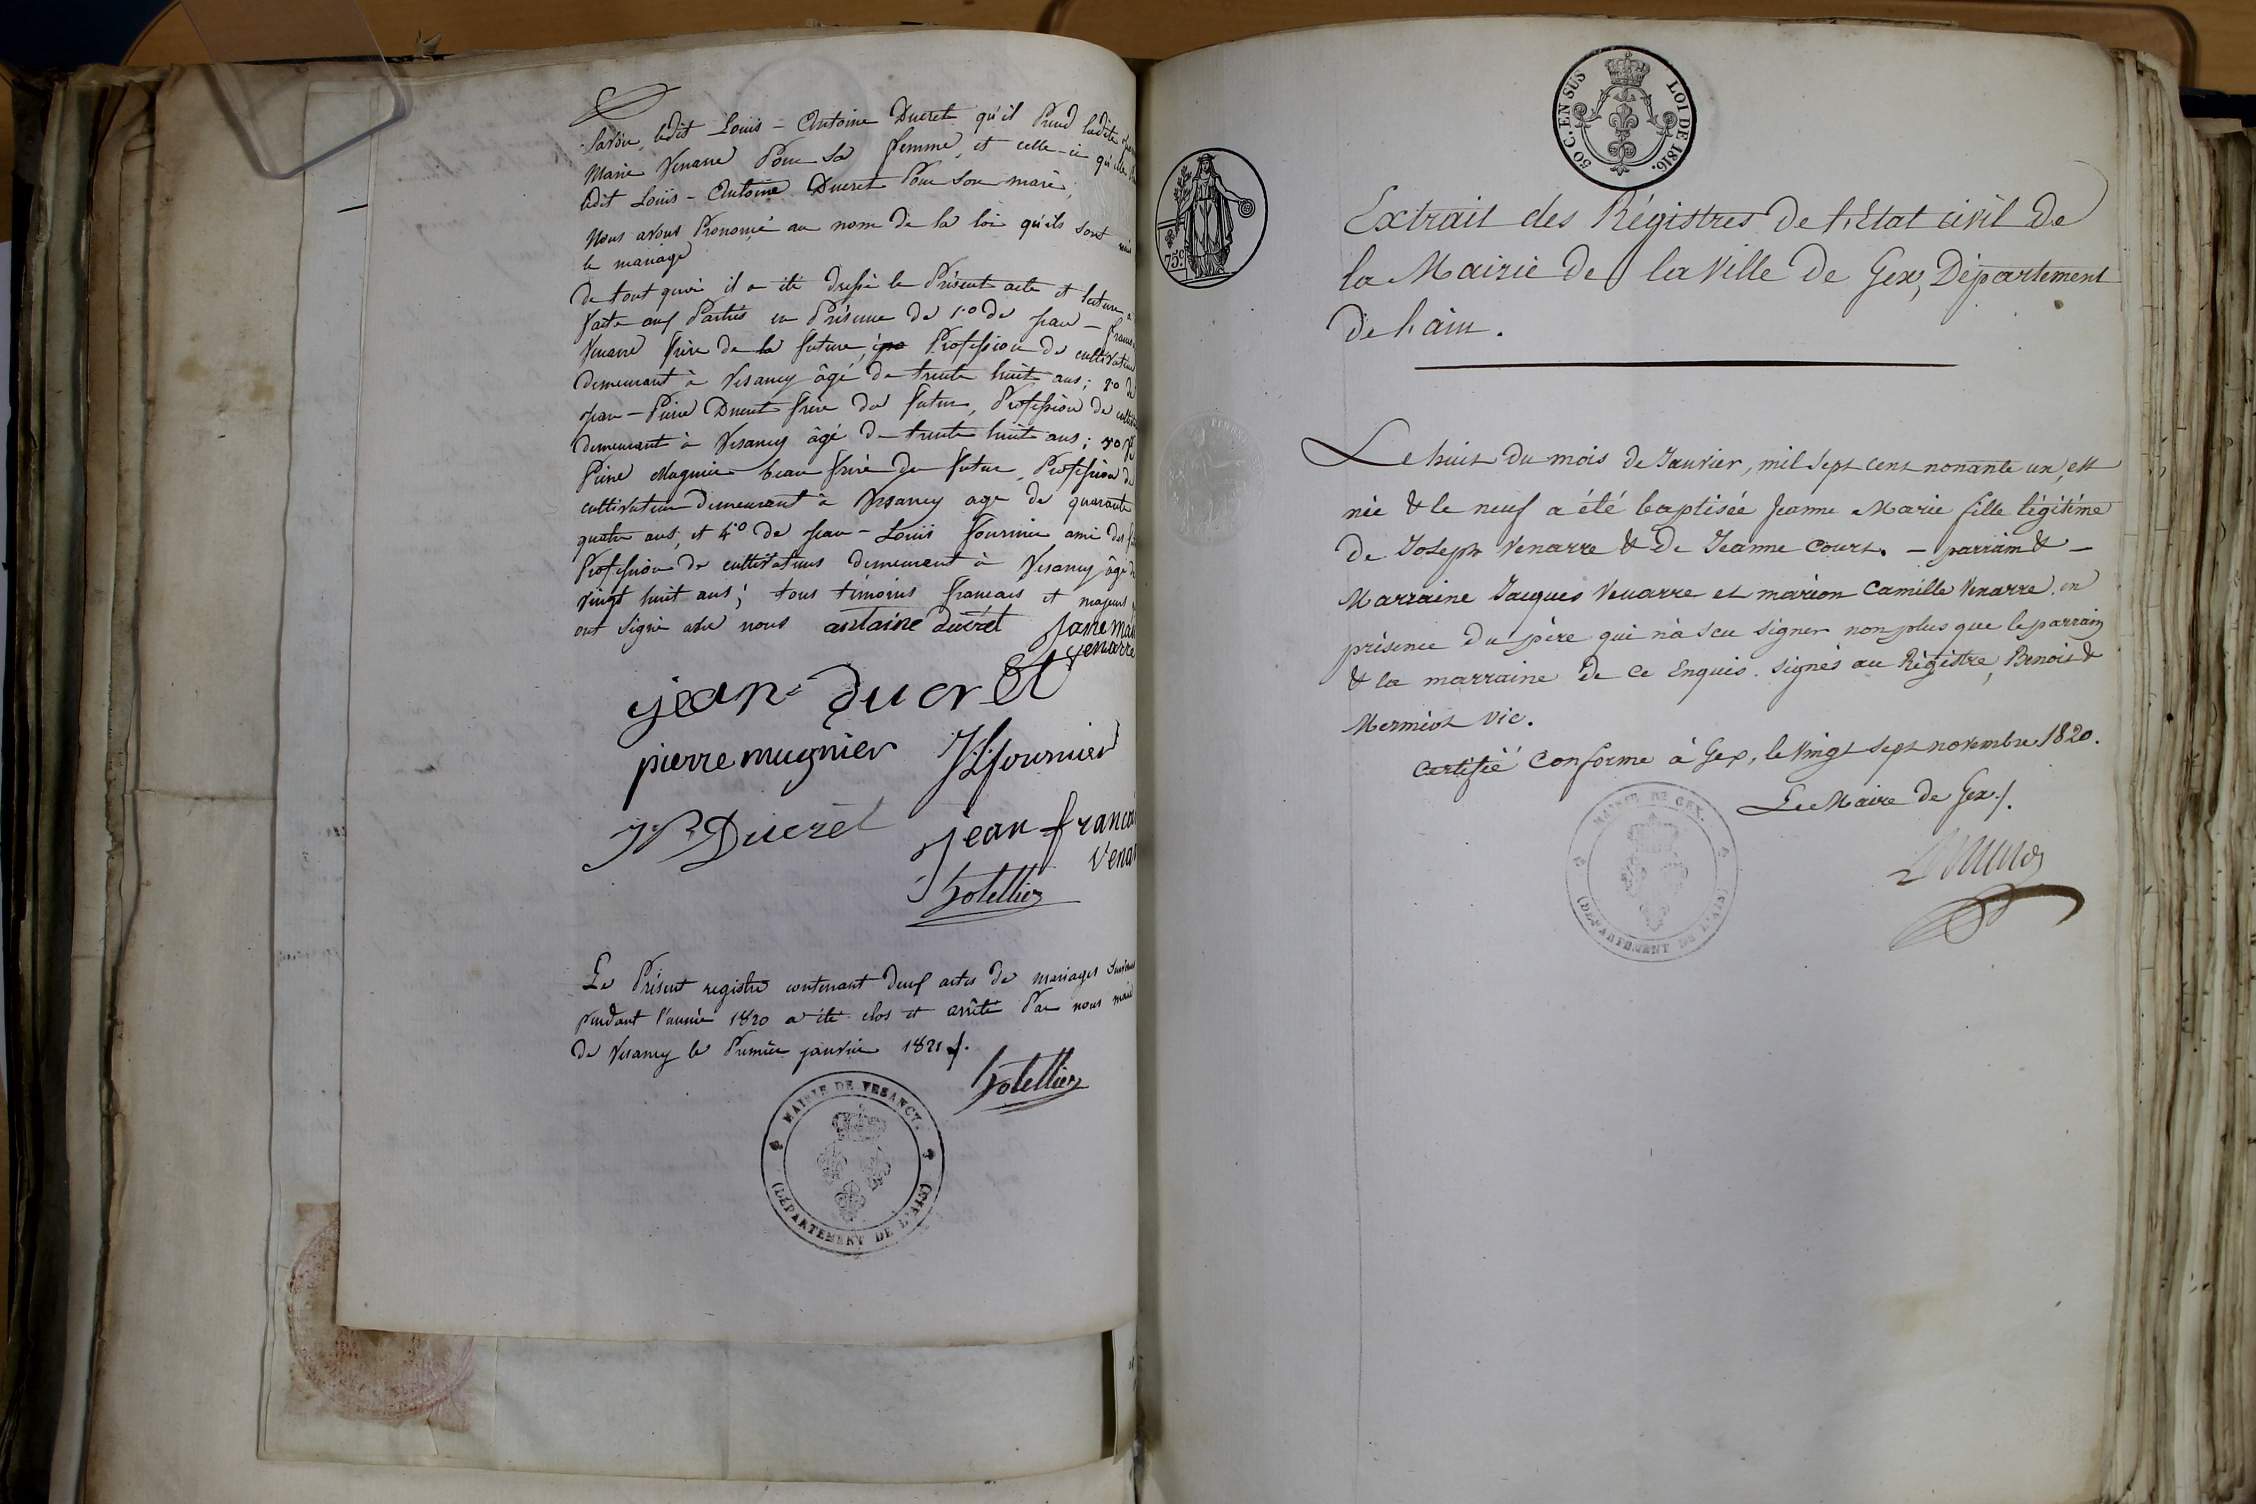 Savoir, ledit Louis - Antoine Ducret qu'il Prend ladite
Marie Venarre Pour Sa femme, et celle-ci qu'elle
ledit Louis - Antoine Ducret Pour Son mari,
Nous avons Prononcé au nom de la loi qu'ils sont unis
le mariage
De tout quoi il a été dressé le Présent acte et lecture
faite aux Parties en Présence de 1.o de jean -
Venarre frère de la future, Profession de cultivateur
demeurant à Vesancy âgé de trente huit ans; 2o de
jean - Pierre Ducret frère du futur, Profession de
demeurant à Vesancy âgé de trente huit ans; 3o
Pierre Mugnier beau frère du futur, Profession de
cultivateur demeurant à Vesancy age de quarante
quatre ans, et 4o de jean - Louis fournier ami des
Profession de cultivateur demeurant à Vesancy âgé de
vingt huit ans; tous témoins francais et majeurs
ont signé avec nous antoine ducret
Venarre
jean ducret
pierre mugnier JLfournier
JP Ducret jean francoi
Vena
hotellier
Le Présent registre contenant deux actes de mariages
pendant l'année 1820 a été clos et arrêté Par nous maire
de Vesancy le Premier janvier 1821.
hotellier
MAIRIE DE VESANCY.
(DÉPARTEMENT DE L'AIN)
50 C. EN SUS LOI DE 1816.
75c
Extrait des Régistres de l'Etat civil de
la Mairie de la Ville de Gex, Département
de l'ain.
Le huit du mois de Janvier, mil sept cent nonante un, est
née & le neuf a été baptisée Jeanne Marie fille légitime
de Joseph Venarre & de Jeanne Court. - parrain & -
Marraine Jacques Venarre et marion Camille Venarre. en
présence du père qui n'a seu signer non plus que le parrain
& la marraine de ce Enquis. signés au Régistre, Benoit &
Mermiot vic.
Certifié Conforme à Gex, le vingt sept novembre 1820.
Le Maire de Gex.
MAIRIE DE GEX.
(DÉPARTEMENT DE L'AIN)